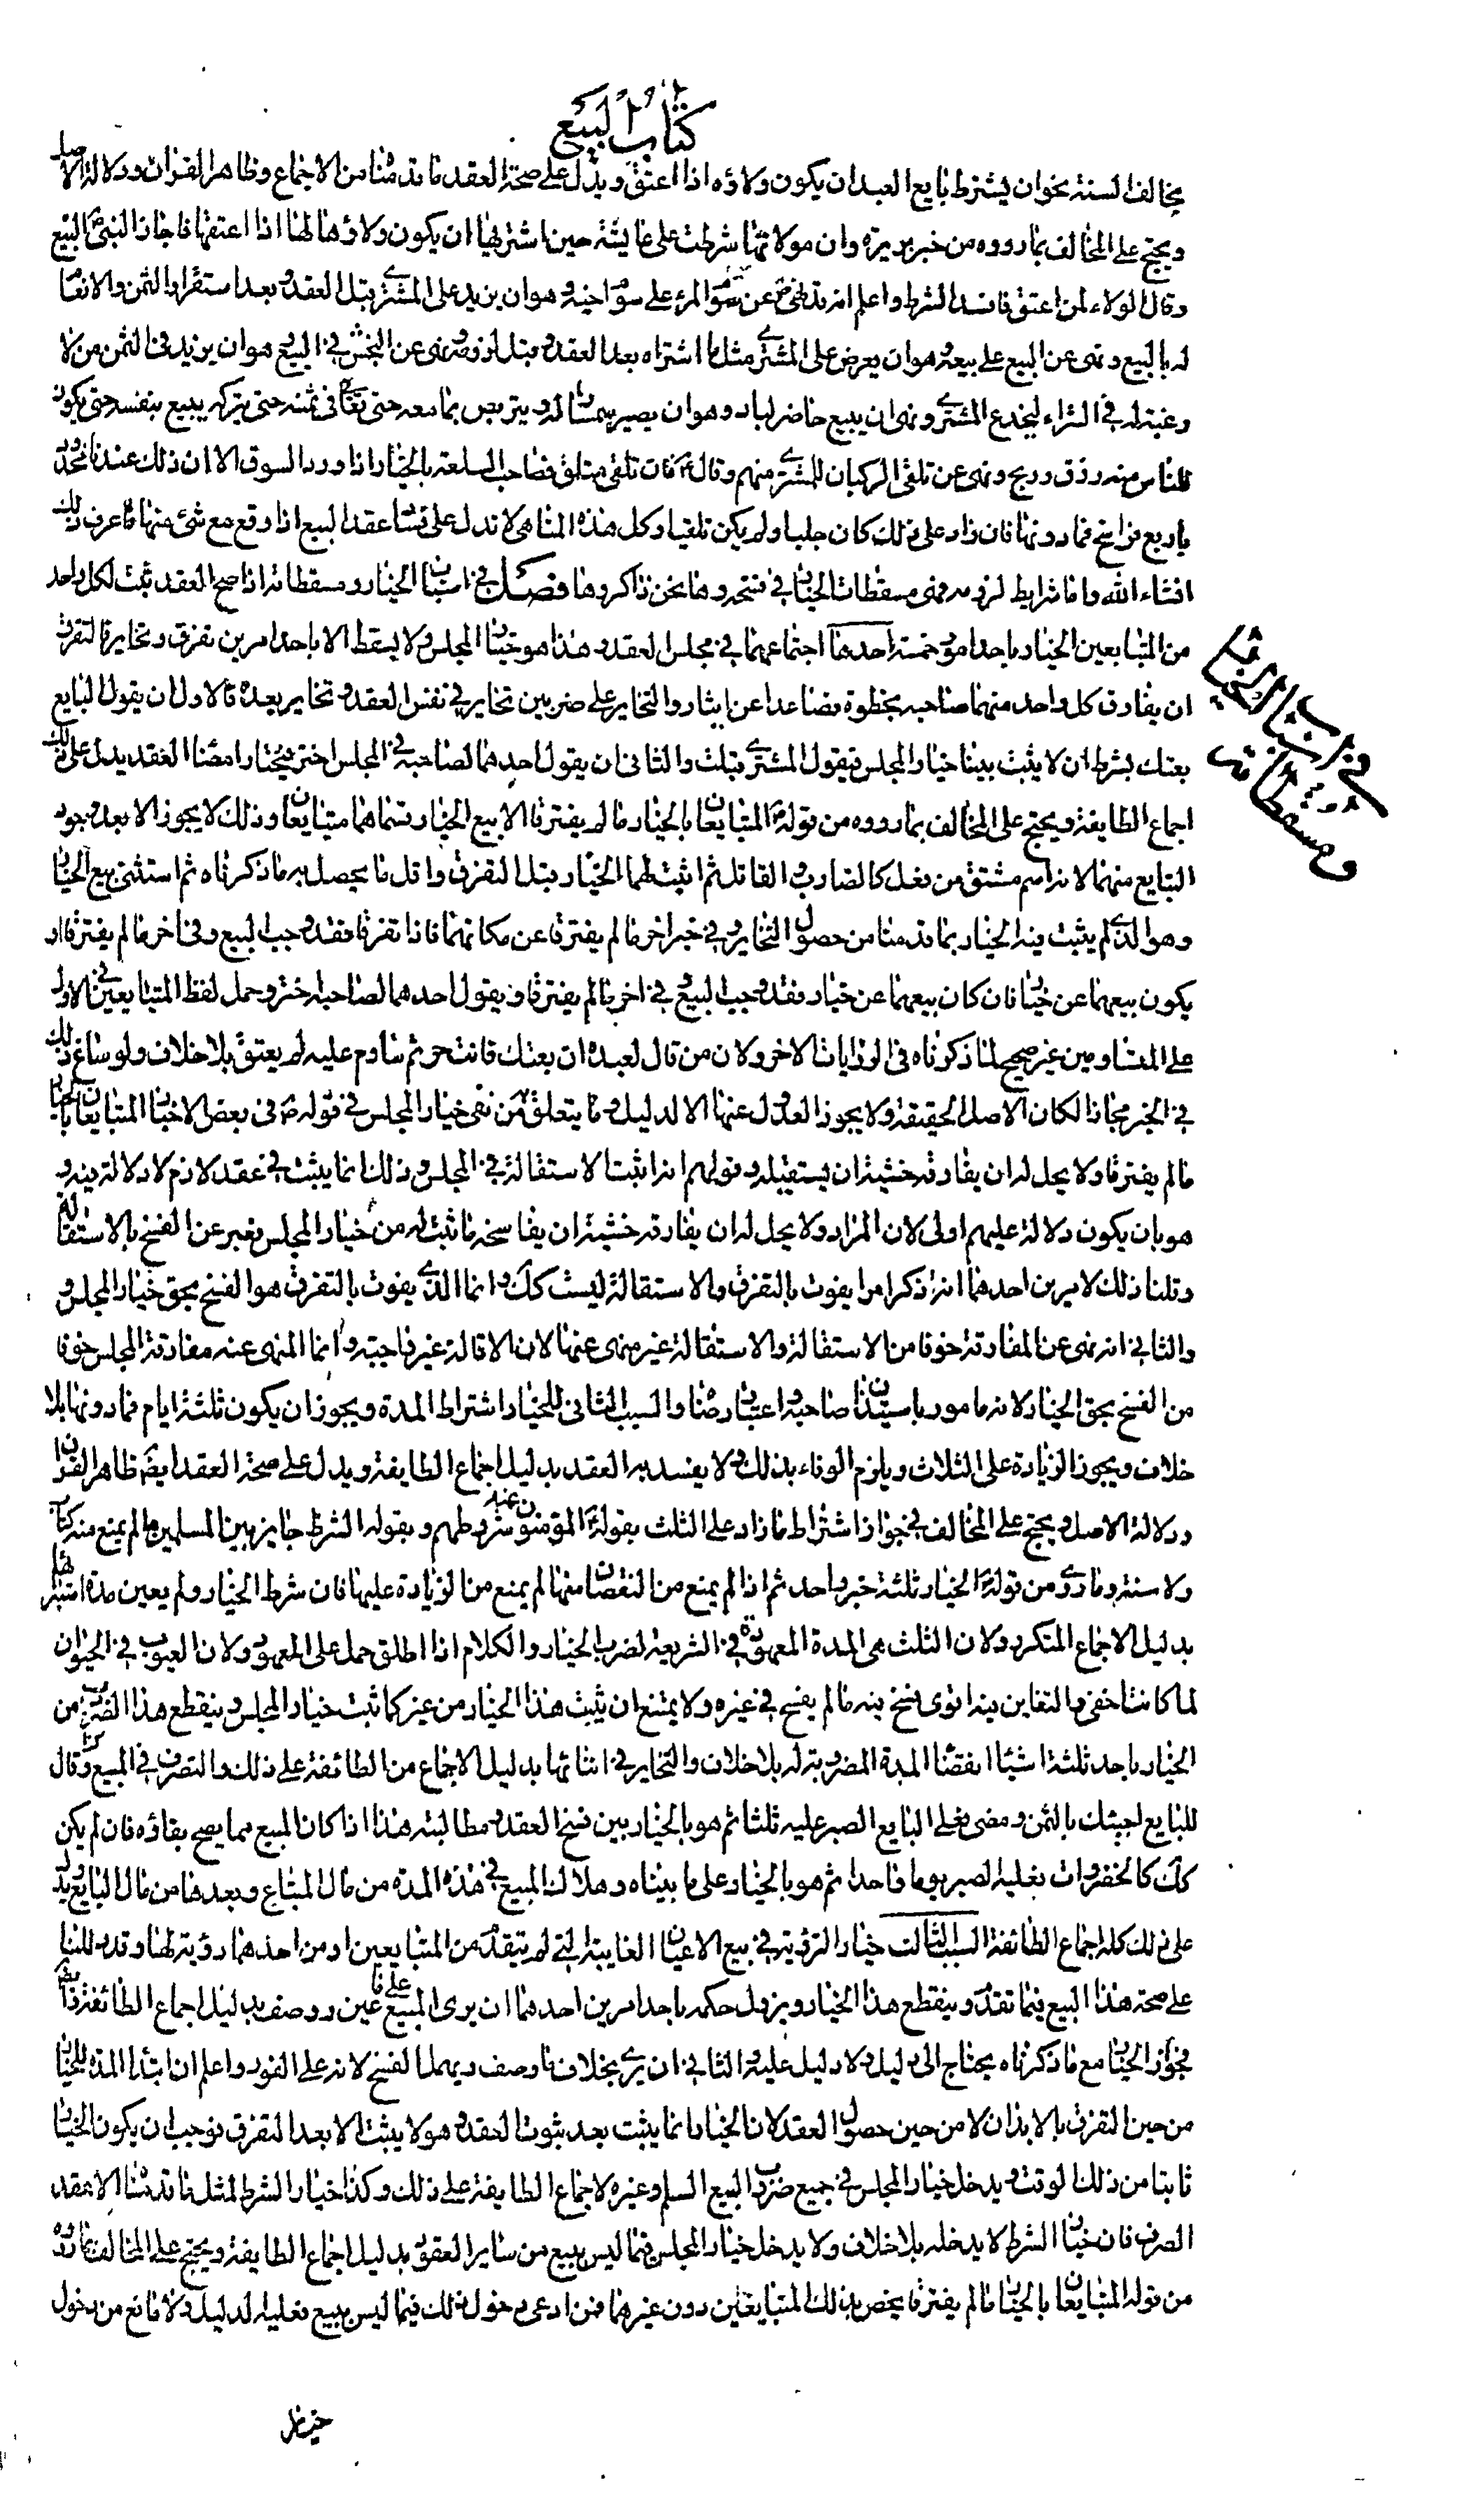 كتاب البيع
يخالف السنة نحو ان يشترط بايع العبد ان يكون ولاؤه اذا اعتق ويدل على صحة العقد ما قدمنا من الاجماع وظاهر القران ودلالة الاصل
ويحتج على المخالف بما رووه من خبر بريرة وان مولاتها شرطت على عايشة حين اشترتها ان يكون ولاؤها لها اذا اعتقتها فاجاز النبي ص البيع
وقال الولاء لمن اعتق فافسد الشرط واعلم انه قد نهى ص عن سوم المرء على سوم اخيه وهو ان يزيد على المشتري قبل العقد وبعد استقرار الثمن والانعام
له بالبيع ونهى عن البيع على بيعه وهو ان يعرض على المشتري مثل ما اشتراه بعد العقد وقبل لزومه ونهى عن النجش في البيع وهو ان يزيد في الثمن من لا
رغبة له في الشراء ليخدع المشتري ونهى ان يبيع حاضر لباد وهو ان يصير سمسارا له ويتربص بما معه حتى يغالي في ثمنه حتى يتركه يبيع بنفسه حتى يكون
للناس منه رزق وربح ونهى عن تلقي الركبان للشري منهم وقال ع فان تلقى متلق فصاحب السلعة بالخيار اذا ورد السوق الا ان ذلك عندنا محدود
باربع فراسخ فما دونها فان زاد على ذلك كان جلبا ولم يكن تلقيا وكل هذه المناهي لا تدل على فساد عقد البيع اذا وقع مع شئ منها ما عرف ذلك
انشاء الله واما شرايط لزومه فهي مسقطات الخيار في فسخه وها نحن ذاكروها فصل في اسباب الخيار ومسقطاته اذا صح العقد ثبت لكل واحد
من المتبايعين الخيار باحد امور خمسة احدها اجتماعهما في مجلس العقد وهذا هو خيار المجلس ولا يسقط الا باحد امرين تفرق وتخاير فالتفرق
ان يفارق كل واحد منهما صاحبه بخطوة فصاعدا عن ايثار والتخاير على ضربين تخاير في نفس العقد وتخاير بعده فالاول ان يقول البايع
بعتك بشرط ان لا يثبت بيننا خيار المجلس فيقول المشتري قبلت والثاني ان يقول احدهما لصاحبه في المجلس اختر فيختار امضاء العقد يدل على ذلك
اجماع الطايفة ويحتج على المخالف بما رووه من قوله ع المتبايعان بالخيار ما لم يفترقا الا بيع الخيار وسماهما متبايعان وذلك لا يجوز الا بعد وجود
التبايع منهما لانه اسم مشتق من فعل كالضارب والقاتل ثم اثبت لهما الخيار قبل التفرق واقل ما يحصل به ما ذكرناه ثم استثنى بيع الخيار
وهو الذي لم يثبت فيه الخيار بما قدمنا من حصول التخاير وفي خبر اخر ما لم يفترقا عن مكانهما فاذا تفرقا فقد وجب البيع وفي اخر ما لم يفترقا او
يكون بيعهما عن خيار فان كان بيعهما عن خيار فقد وجب البيع وفي اخر ما لم يفترقا او يقول احدهما لصاحبه اختر وحمل لفظ المتبايعين في الاول
على المتساومين غير صحيح لما ذكرناه في الروايات الاخر ولان من قال لعبده ان بعتك فانت حر ثم ساوم عليه لم يعتق بلا خلاف ولو ساغ ذلك
في الخبر مجازا لكان الاصل الحقيقة ولا يجوز العدول عنها الا لدليل وما يتعلق من نفى خيار المجلس في قوله ص في بعض الاخبار المتبايعان بالخيار
ما لم يفترقا ولا يحل له ان يفارقه خشية ان يستقيله وقولهم انه اثبت الاستقالة في المجلس وذلك انما يثبت في عقد لازم لا دلالة فيه و
هو بان يكون دلالة عليهم اولى لان المراد ولا يحل له ان يفارقه خشية ان يفاسخه ما ثبت له من خيار المجلس فعبر عن الفسخ بالاستقالة
وقلنا ذلك لامرين احدهما انه ذكر امرا يفوت بالتفرق والاستقالة ليست كك وانما الذي يفوت بالتفرق هو الفسخ بحق خيار المجلس و
والثاني انه نهى عن المفارقة خوفا من الاستقالة والاستقالة غير منهى عنها لان الاقالة غير واجبة وانما المنهى عنه مفارقة المجلس خوفا
من الفسخ بحق الخيار لانه مامور باستيذان صاحبه واعتبار رضاه والسبب الثاني للخيار اشتراط المدة ويجوز ان يكون ثلثة ايام فما دونها بلا
خلاف ويجوز الزيادة على الثلاث ويلزم الوفاء بذلك ولا يفسد به العقد بدليل اجماع الطايفة ويدل على صحة العقد ايضا ظاهر القران
ودلالة الاصل ويحتج على المخالف في جواز اشتراط ما زاد على الثلث بقوله ع المؤمنون عند شروطهم وبقوله الشرط جايز بين المسلمين ما لم يمنع منه كتاب
ولا سنة وما روي من قوله ع الخيار ثلثة خبر واحد ثم اذا لم يمنع من النقصان منها لم يمنع من الزيادة عليها فان شرط الخيار ولم يعين مدة
بدليل الاجماع المتكرر ولان الثلث هى المدة المعهودة في الشريعة لضرب الخيار والكلام اذا اطلق حمل على المعهود ولان العيوب في الحيوان
لما كانت اخفى والتغابن فيه اقوى فسخ فيه ما لم يفسح في غيره ولا يمتنع ان يثبت هذا الخيار من غير كما ثبت خيار المجلس وينقطع هذا الضرب من
الخيار باحد ثلثة اشياء انقضاء المدة المضروبة له بلا خلاف والتخاير في اثنائها بدليل الاجماع من الطائفة على ذلك والتصرف في المبيع وقال
للبايع اجيئك بالثمن ومضى فعلى البايع الصبر عليه ثلثا ثم هو بالخيار بين فسخ العقد ومطالبته هذا اذا كان المبيع مما يصح بقاؤه فان لم يكن
كك كالخضروات فعليه الصبر يوما واحدا ثم هو بالخيار على ما بيناه وهلاك المبيع في هذه المدة من مال المبتاع وبعدها من مال البايع يدل
على ذلك كله اجماع الطائفة السبب الثالث خيار الرؤية في بيع الاعيان الغايبة التي لم يتقدم من المتبايعين او من احدهما رؤية لها
على صحة هذا البيع فيما تقدم وينقطع هذا الخيار ويزول حكمه باحد امرين احدهما ان يرى المبيع على ما عين ووصف بدليل اجماع الطائفة
فجواز الخيار مع ما ذكرناه يحتاج الى دليل ولا دليل عليه والثاني ان يرى بخلاف ما وصف ويهمل الفسخ لانه على الفور واعلم ان ابتداء المدة للخيار
من حين التفرق بالابدان لا من حين حصول العقد لان الخيار انما يثبت بعد ثبوت العقد وهو لا يثبت الا بعد التفرق فوجب ان يكون الخيار
ثابتا من ذلك الوقت ويدخل خيار المجلس في جميع ضروب البيع السلم وغيره لاجماع الطايفة على ذلك وكذا خيار الشرط لمثل ما قدمنا الا عقد
الصرف فان خيار الشرط لا يدخله بلا خلاف ولا يدخل خيار المجلس فيما ليس ببيع من ساير العقود بدليل اجماع الطايفة ويحتج على المخالف بما رووه
من قوله المتبايعان بالخيار ما لم يفترقا يخص بذلك المتبايعين دون غيرهما فمن ادعى دخول ذلك فيما ليس ببيع فعليه الدليل ولا مانع من دخول
في اسباب الخيار
ومسقطاته